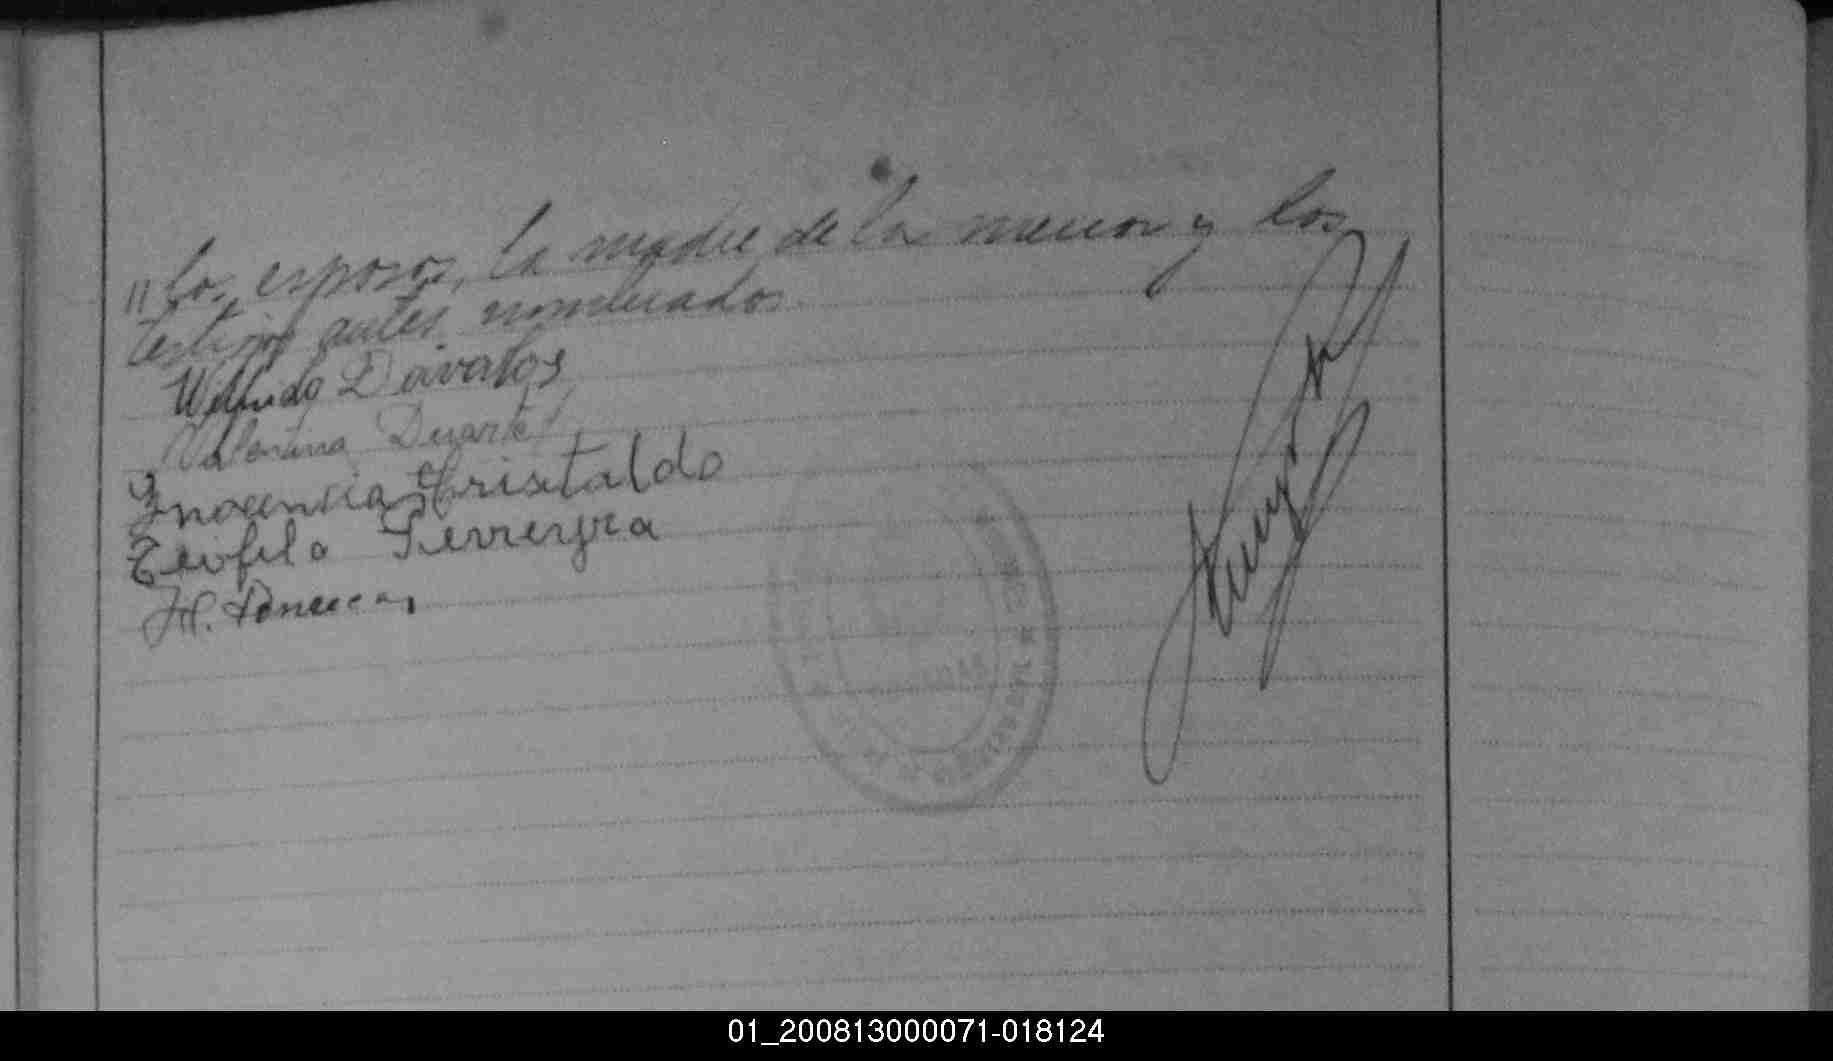 // los esposos, la madre de la menor y los
testigos antes nombrados
Wilfrido Dávalos
Valentina Duarte
Inocencia Cristaldo
Teofilo Ferreyra
H.
01_200813000071-018124